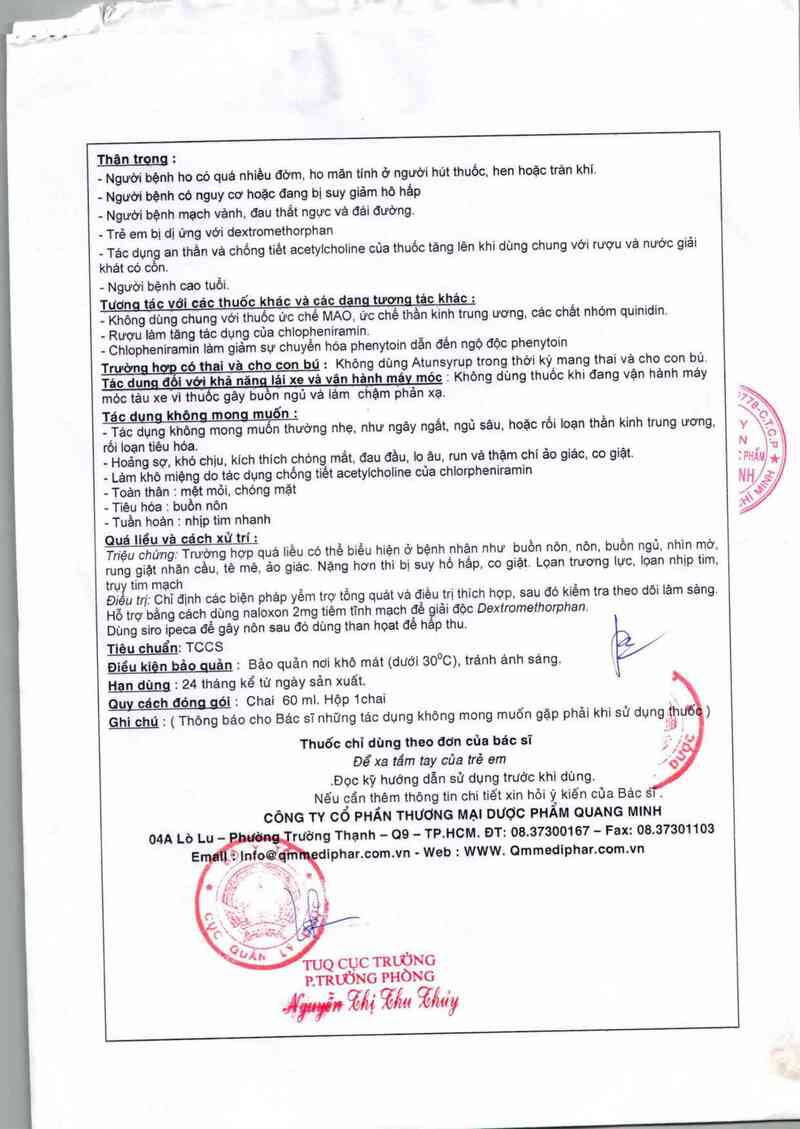 Thận trọng :
- Người bệnh ho có quá nhiều đờm, ho mãn tính ở người hút thuốc, hen hoặc tràn khí.
- Người bệnh có nguy cơ hoặc đang bị suy giảm hô hấp
- Người bệnh mạch vành, đau thắt ngực và đái đường.
- Trẻ em bị dị ứng với dextromethorphan
- Tác dụng an thần và chống tiết acetylcholine của thuốc tăng lên khi dùng chung với rượu và nước giải
khát có cồn.
- Người bệnh cao tuổi.
Tương tác với các thuốc khác và các dạng tương tác khác :
- Không dùng chung với thuốc ức chế MAO, ức chế thần kinh trung ương, các chất nhóm quinidin.
- Rượu làm tăng tác dụng của chlopheniramin.
- Chlopheniramin làm giảm sự chuyển hóa phenytoin dẫn đến ngộ độc phenytoin
Trường hợp có thai và cho con bú : Không dùng Atunsyrup trong thời kỳ mang thai và cho con bú.
Tác dụng đối với khả năng lái xe và vận hành máy móc : Không dùng thuốc khi đang vận hành máy
móc tàu xe vì thuốc gây buồn ngủ và làm chậm phản xạ.
Tác dụng không mong muốn :
- Tác dụng không mong muốn thường nhẹ, như ngây ngất, ngủ sâu, hoặc rối loạn thần kinh trung ương,
rối loạn tiêu hóa.
- Hoảng sợ, khó chịu, kích thích chóng mắt, đau đầu, lo âu, run và thậm chí ảo giác, co giật.
- Làm khô miệng do tác dụng chống tiết acetylcholine của chlorpheniramin
- Toàn thân : mệt mỏi, chóng mặt
- Tiêu hóa : buồn nôn
- Tuần hoàn : nhịp tim nhanh
Quá liều và cách xử trí :
Triệu chứng: Trường hợp quá liều có thể biểu hiện ở bệnh nhân như buồn nôn, nôn, buồn ngủ, nhìn mờ,
rung giật nhãn cầu, tê mê, ảo giác. Nặng hơn thì bị suy hô hấp, co giật. Loạn trương lực, loạn nhịp tim,
trụy tim mạch
Điều trị: Chỉ định các biện pháp yểm trợ tổng quát và điều trị thích hợp, sau đó kiểm tra theo dõi lâm sàng.
Hỗ trợ bằng cách dùng naloxon 2mg tiêm tĩnh mạch để giải độc Dextromethorphan.
Dùng siro ipeca để gây nôn sau đó dùng than họat để hấp thu.
Tiêu chuẩn: TCCS
Điều kiện bảo quản : Bảo quản nơi khô mát (dưới 30⁰C), tránh ánh sáng.
Hạn dùng : 24 tháng kể từ ngày sản xuất.
Quy cách đóng gói : Chai 60 ml. Hộp 1chai
Ghi chú : ( Thông báo cho Bác sĩ những tác dụng không mong muốn gặp phải khi sử dụng thuốc )
Thuốc chỉ dùng theo đơn của bác sĩ
Để xa tầm tay của trẻ em
.Đọc kỹ hướng dẫn sử dụng trước khi dùng.
Nếu cần thêm thông tin chi tiết xin hỏi ý kiến của Bác sĩ .
CÔNG TY CỔ PHẦN THƯƠNG MẠI DƯỢC PHẨM QUANG MINH
04A Lò Lu – Phường Trường Thạnh – Q9 – TP.HCM. ĐT: 08.37300167 – Fax: 08.37301103
Email : Info@qmmediphar.com.vn - Web : WWW. Qmmediphar.com.vn
CỤC QUẢN LÝ
DƯỢC
TUQ CỤC TRƯỞNG
P.TRƯỞNG PHÒNG
Nguyễn Thị Thu Thủy